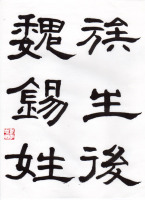 族生後
魏錫姓